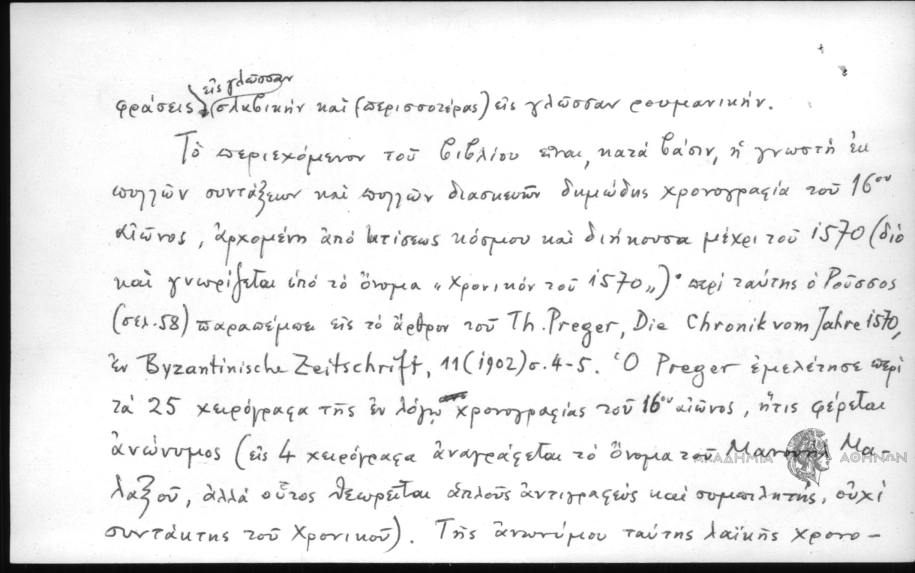 εἰς γλῶσσαν
φράσεις σλαβικήν καὶ (περισσοτέρας) εἰς γλῶσσαν ρουμανικήν.
Τὸ περιεχόμενον τοῦ βιβλίου εἶναι, κατά βάσιν, ἡ γνωστή ἐκ
πολλῶν συντάξεων καὶ πολλῶν διασκευῶν δημώδης χρονογραφία τοῦ 16ου
αἰῶνος, ἀρχομένη ἀπό κτίσεως κόσμου καὶ διήκουσα μέχρι τοῦ 1570 (διὸ
καὶ γνωρίζεται ὑπό τὸ ὄνομα «Χρονικόν τοῦ 1570»)· περί ταύτης ὁ Ροῦσσος
(σελ. 58) παραπέμπει εἰς τὸ ἄρθρον τοῦ Th. Preger, Die Chronik vom Jahre 1570,
ἐν Byzantinische Zeitschrift, 11 (1902) σ. 4-5. Ὁ Preger ἐμελέτησε περί
τά 25 χειρόγραφα τῆς ἐν λόγῳ χρονογραφίας τοῦ 16ου αἰῶνος, ἥτις φέρεται
ἀνώνυμος (εἰς 4 χειρόγραφα ἀναγράφεται τὸ ὄνομα τοῦ Μανουὴλ Μα-
λαξοῦ, ἀλλά οὗτος θεωρεῖται ἁπλοῦς ἀντιγραφεύς καὶ συμπιλητής, οὐχί
συντάκτης τοῦ Χρονικοῦ). Τῆς ἀνωνύμου ταύτης λαϊκῆς χρονο-
ΑΚΑΔΗΜΙΑ ΑΘΗΝΩΝ